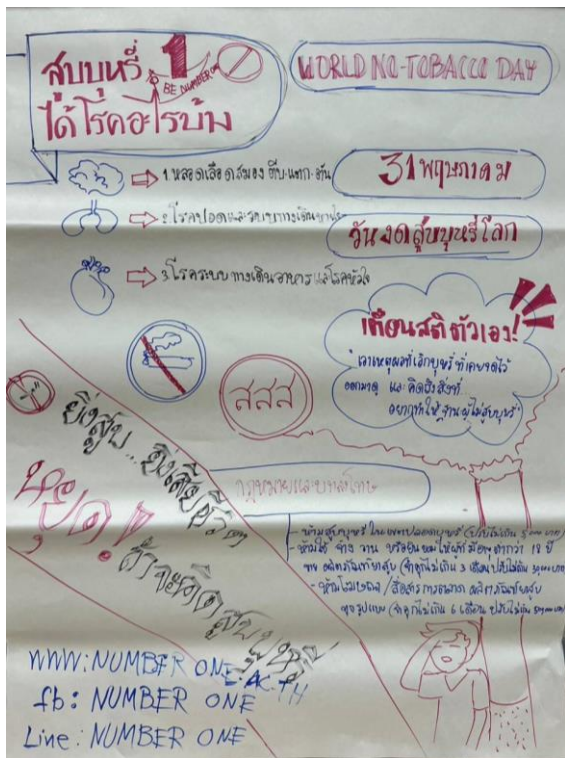 สูบบุหรี่
1
BE NUMBER ONE
ได้โรคอะไรบ้าง
WORLD NO-TOBACCO DAY
31 พฤษภาคม
วันงดสูบบุหรี่โลก
1. หลอดเลือดสมอง ตีบ-แตก-ตัน
2. โรคปอดและระบบทางเดินหายใจ
3. โรคระบบทางเดินอาหาร และโรคหัวใจ
เตือนสติตัวเอง!
"เอาเหตุผลที่เลิกบุหรี่ ที่เคยจดไว้
ออกมาดู และคิดถึงสิ่งที่
อยากทำให้ ฐานผู้ไม่สูบบุหรี่"
สสส
ยิ่งสูบ... ยิ่งเสียชีวิต
หยุด!
ถ้าจะคิดสูบบุหรี่
กฎหมายและบทลงโทษ
- ห้ามสูบบุหรี่ในเขตปลอดบุหรี่ (ปรับไม่เกิน 5,000 บาท)
- ห้ามใช้ จ้าง วาน หรือยินยอมให้ผู้ที่มีอายุต่ำกว่า 18 ปี
ขาย ผลิตภัณฑ์ยาสูบ (จำคุกไม่เกิน 3 เดือน ปรับไม่เกิน 30,000 บาท)
- ห้ามโฆษณา/สื่อสารการตลาด ผลิตภัณฑ์ยาสูบ
ทุกรูปแบบ (จำคุกไม่เกิน 6 เดือน ปรับไม่เกิน
WWW: NUMBER ONE.AC.TH
fb: NUMBER ONE
Line: NUMBER ONE